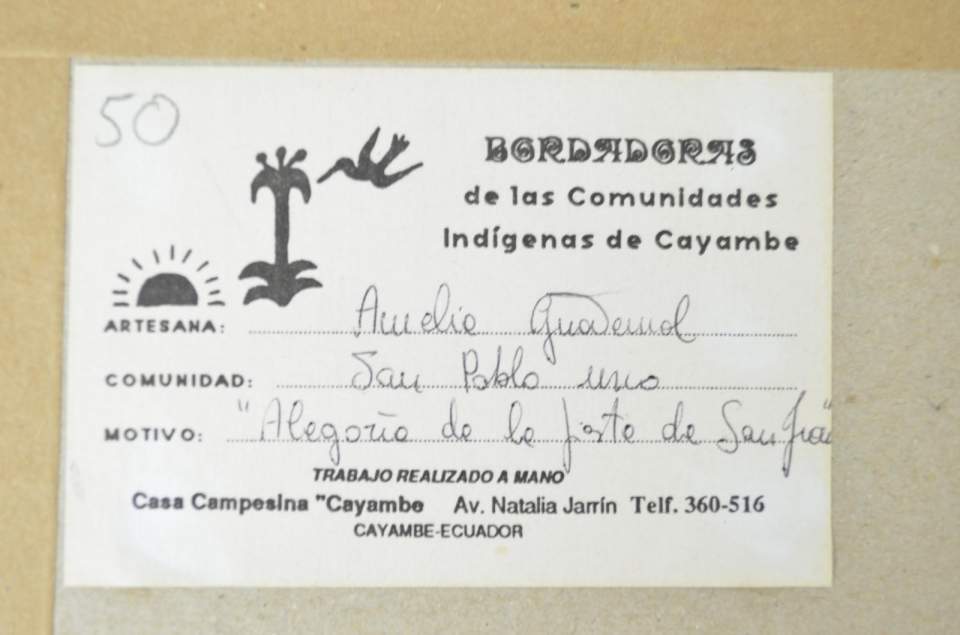 50
BORDADORAS
de las Comunidades
Indígenas de Cayambe
ARTESANA: Amelia
COMUNIDAD: San Pablo uno
MOTIVO: "Alegoria de la de San
TRABAJO REALIZADO A MANO
Casa Campesina "Cayambe Av. Natalia Jarrín Telf. 360-516
CAYAMBE-ECUADOR